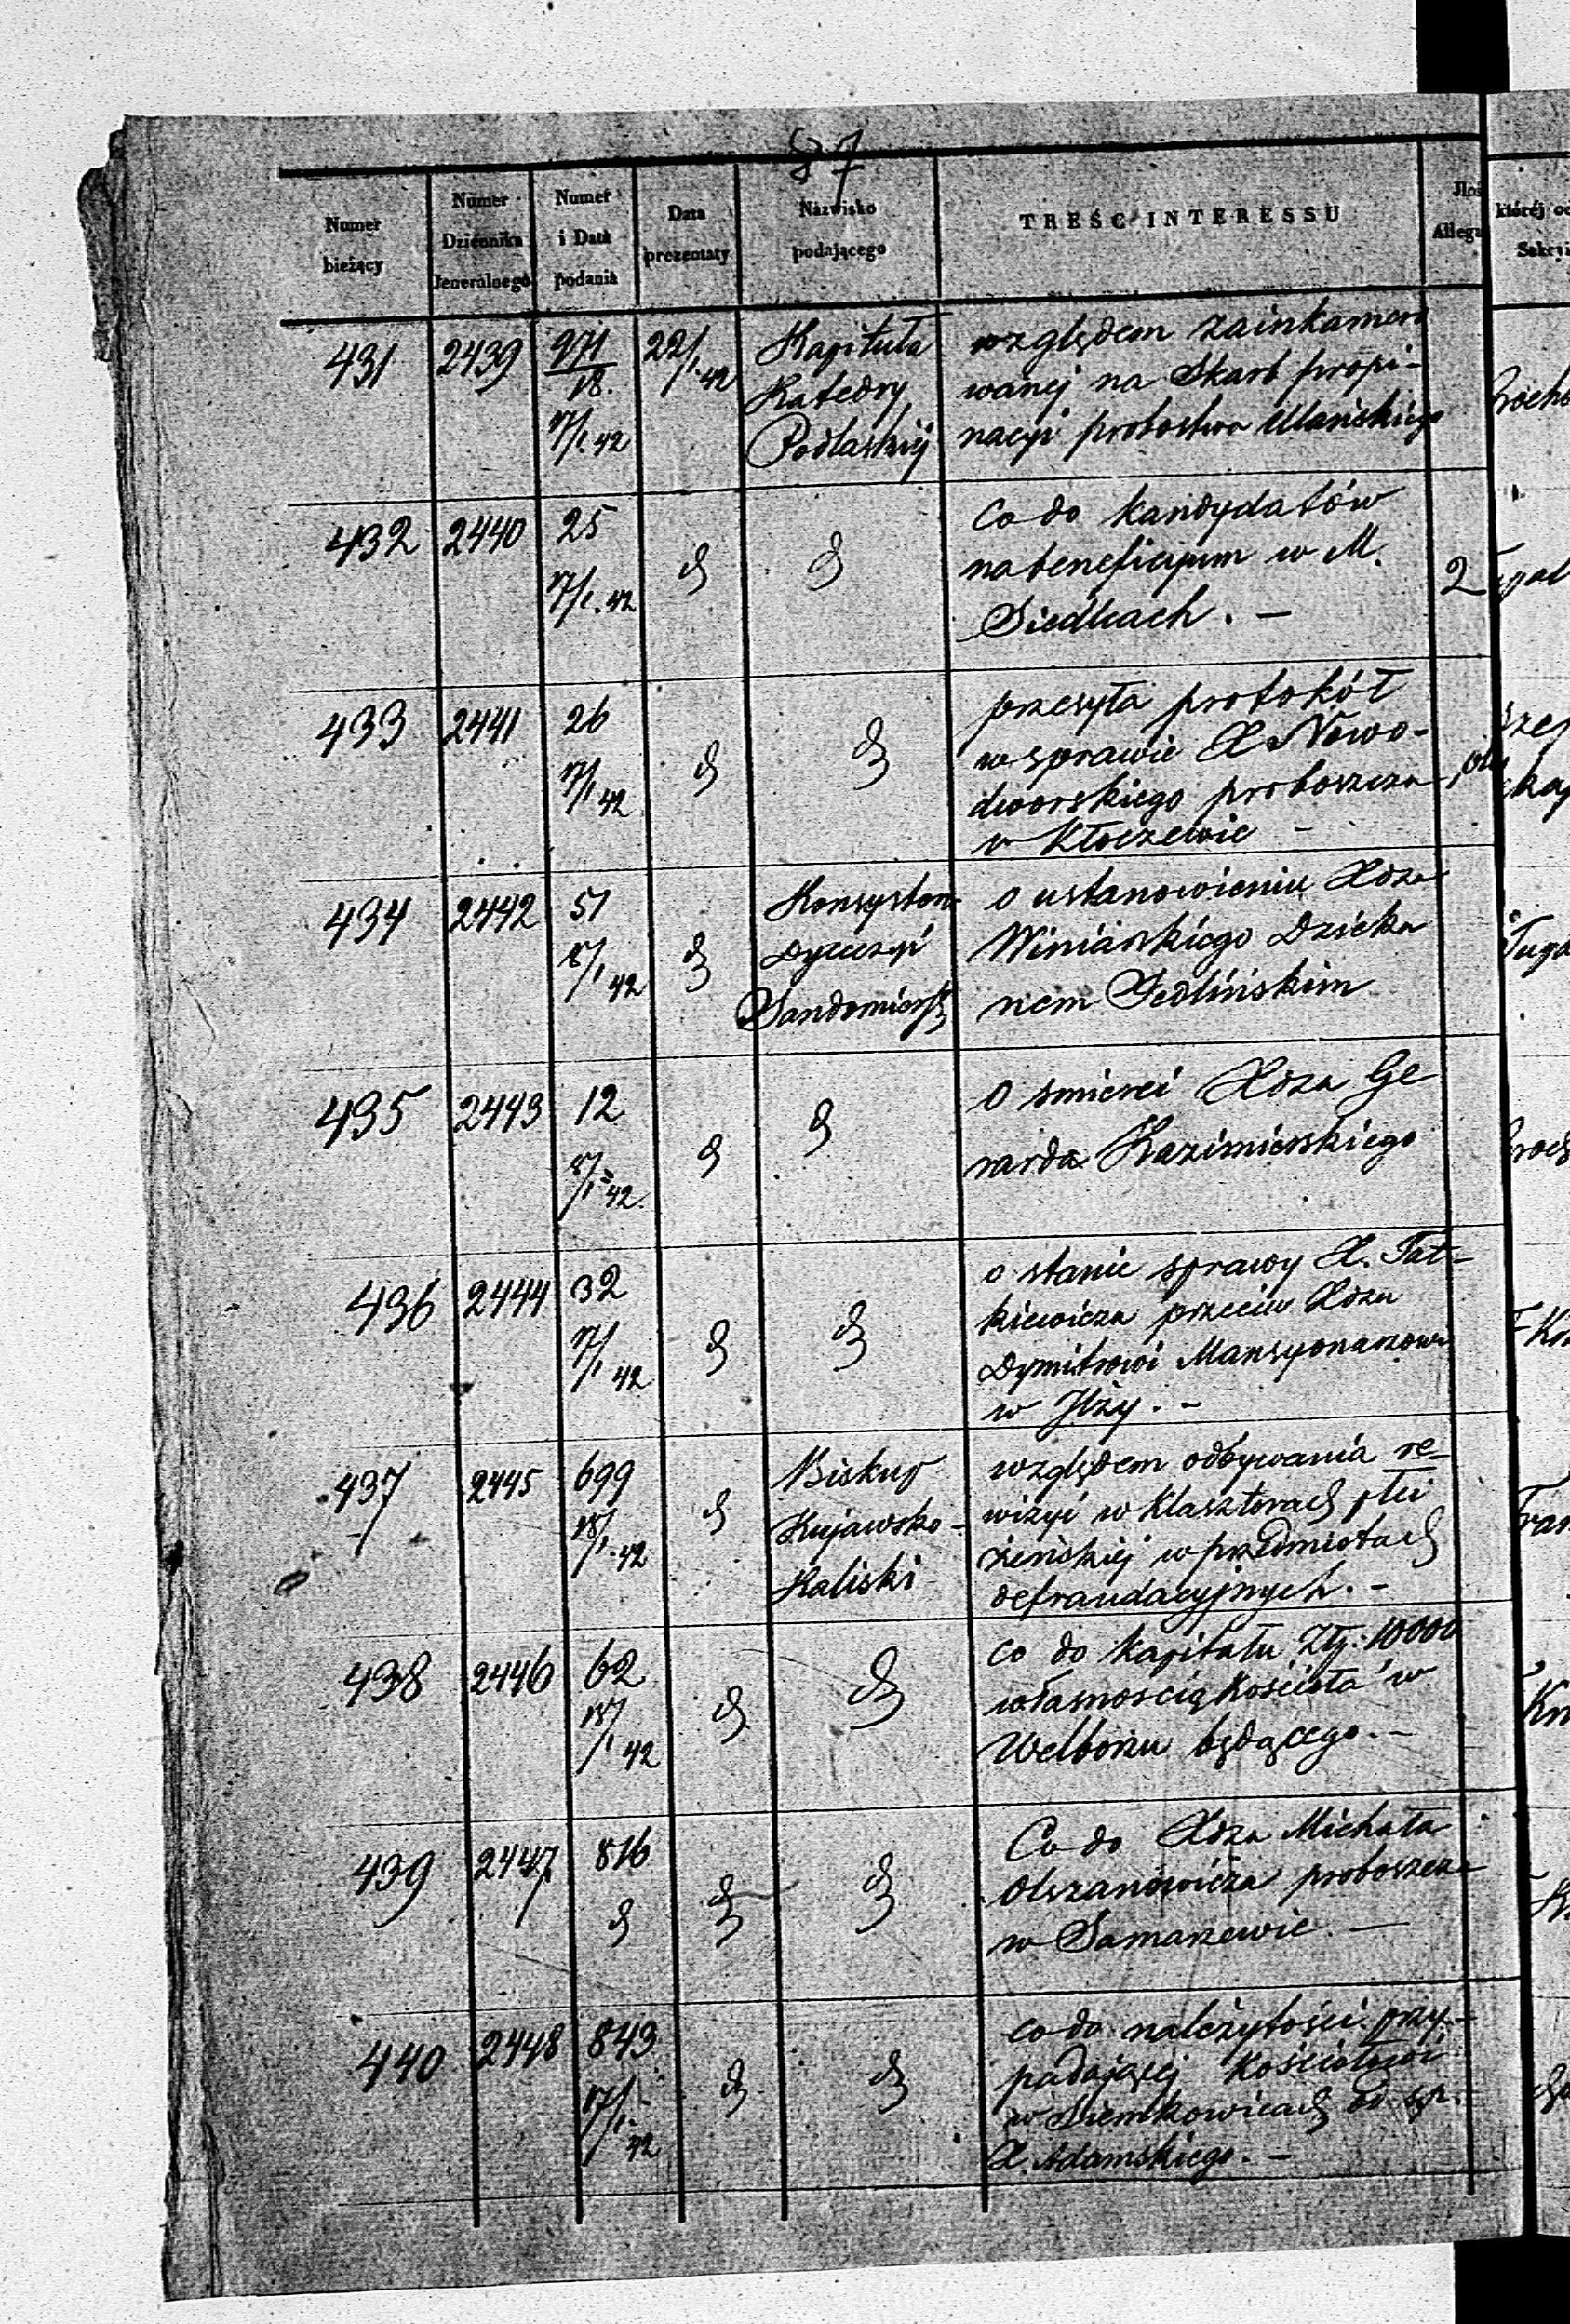 87
Numer bieżący
Numer Dziennika Jeneralnego
Numer i Data podania
Data prezentaty
Nazwisko podającego
TREŚĆ INTERESSU
której
431 2439 971/18. 17/1.42 22/1.42
Kapituła
Katedry
Podlaskiéj
względem zainkamero
wanej na Skarb propi-
nacyi probostwa Ulańskiego
432 2440 25 17/1.42 d d
Co do kandydatów
na beneficyum w M.
Siedlcach. —
2
433 2441 26 17/1 42 d d
przesyła protokół
w sprawie X Nowo-
dworskiego proboszcza
w Kłoczewie —
434 2442 51 18/1 42 d
Konsystorz
Dyecezyi
Sandomiersk
o ustanowieniu Xdza
Winiarskiego Dzieka
nem Jedlińskim
435 2443 12 18/1 42. d d
O smierci Xdza Ge
rarda Kazimierskiego
436 2444 32 17/1 42 d d
o stanie sprawy X. Fat-
kiewicza przeciw Xdzu
Dymitrowi Mansyonarzowi
w Iłży. —
437 2445 699 18/1.42 d
Biskup
Kujawsko-
Kaliski
względem odbywania re-
wizyi w Klasztorach płci
żeńskiej w przedmiotach
defraudacyjnych. —
438 2446 62 18/1 42 d d
co do kapitału Złp: 10000
własnoscią Kościoła w
Wełboru będącego. —
439 2447 816 d d d
Co do Xdza Michała
Olszanowicza proboszcza
w Samarzewie. —
440 2448 843 17/1 42 d d
co do należytości przy-
padającej Kościołowi
w Siemkowicach od śp.
X. Adamskiego. —